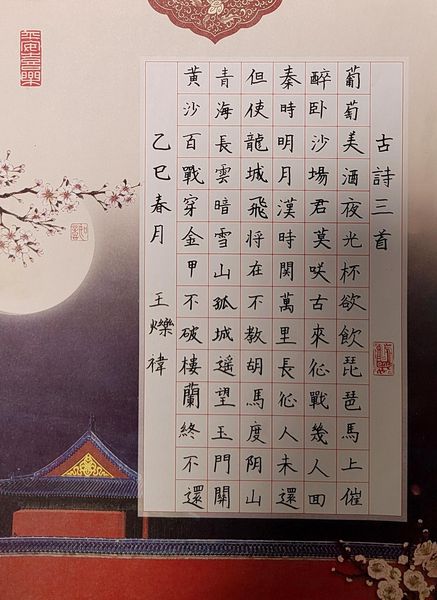 平安喜樂
古詩三首
葡萄美酒夜光杯欲飲琵琶馬上催
醉卧沙場君莫咲古來征戰幾人囬
秦時明月漢時関萬里長征人未還
但使龍城飛将在不教胡馬度阴山
青海長雲暗雪山孤城遥望玉門關
黄沙百戰穿金甲不破樓蘭終不還
乙巳春月 王爍禕